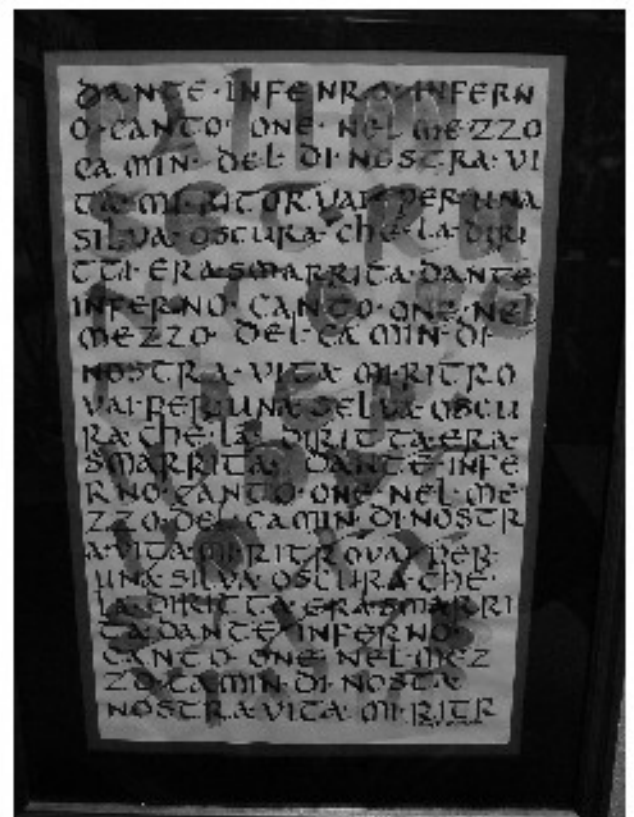 DANTE·INFENRO·INFERN
O·CANTO·ONE·NEL MEZZO
CA MIN·DEL·DI·NOSTRA·VI
TA·MI·RITOR VAI·PER·UNA
SILVA·OSCURA·CHE·LA·DIRI
TTA·ERA·SMARRITA·DANTE
INFERNO·CANTO·ONE·NEL
MEZZO DEL·CA MIN·DI·
NOSTRA·VITA MI·RITRO
VAI·PER·UNA·SELVA·OSCU
RA·CHE·LA·DIRIT TA·ERA·
SMARRITA·DANTE·INFE
RNO·CANTO·ONE·NEL·ME·
ZZO·DEL CAMIN·DI·NOSTR
A·VITA·MI·RITROVAI·PER·
UNA·SILVA·OSCURA·CHE·
LA·DIRITTA·ERA·SMARRI
TA·DANTE·INFERNO·
CANTO·ONE·NEL·MEZ
ZO·CAMIN·DI·NOSTA
NOSTRA·VITA·MI·RITR